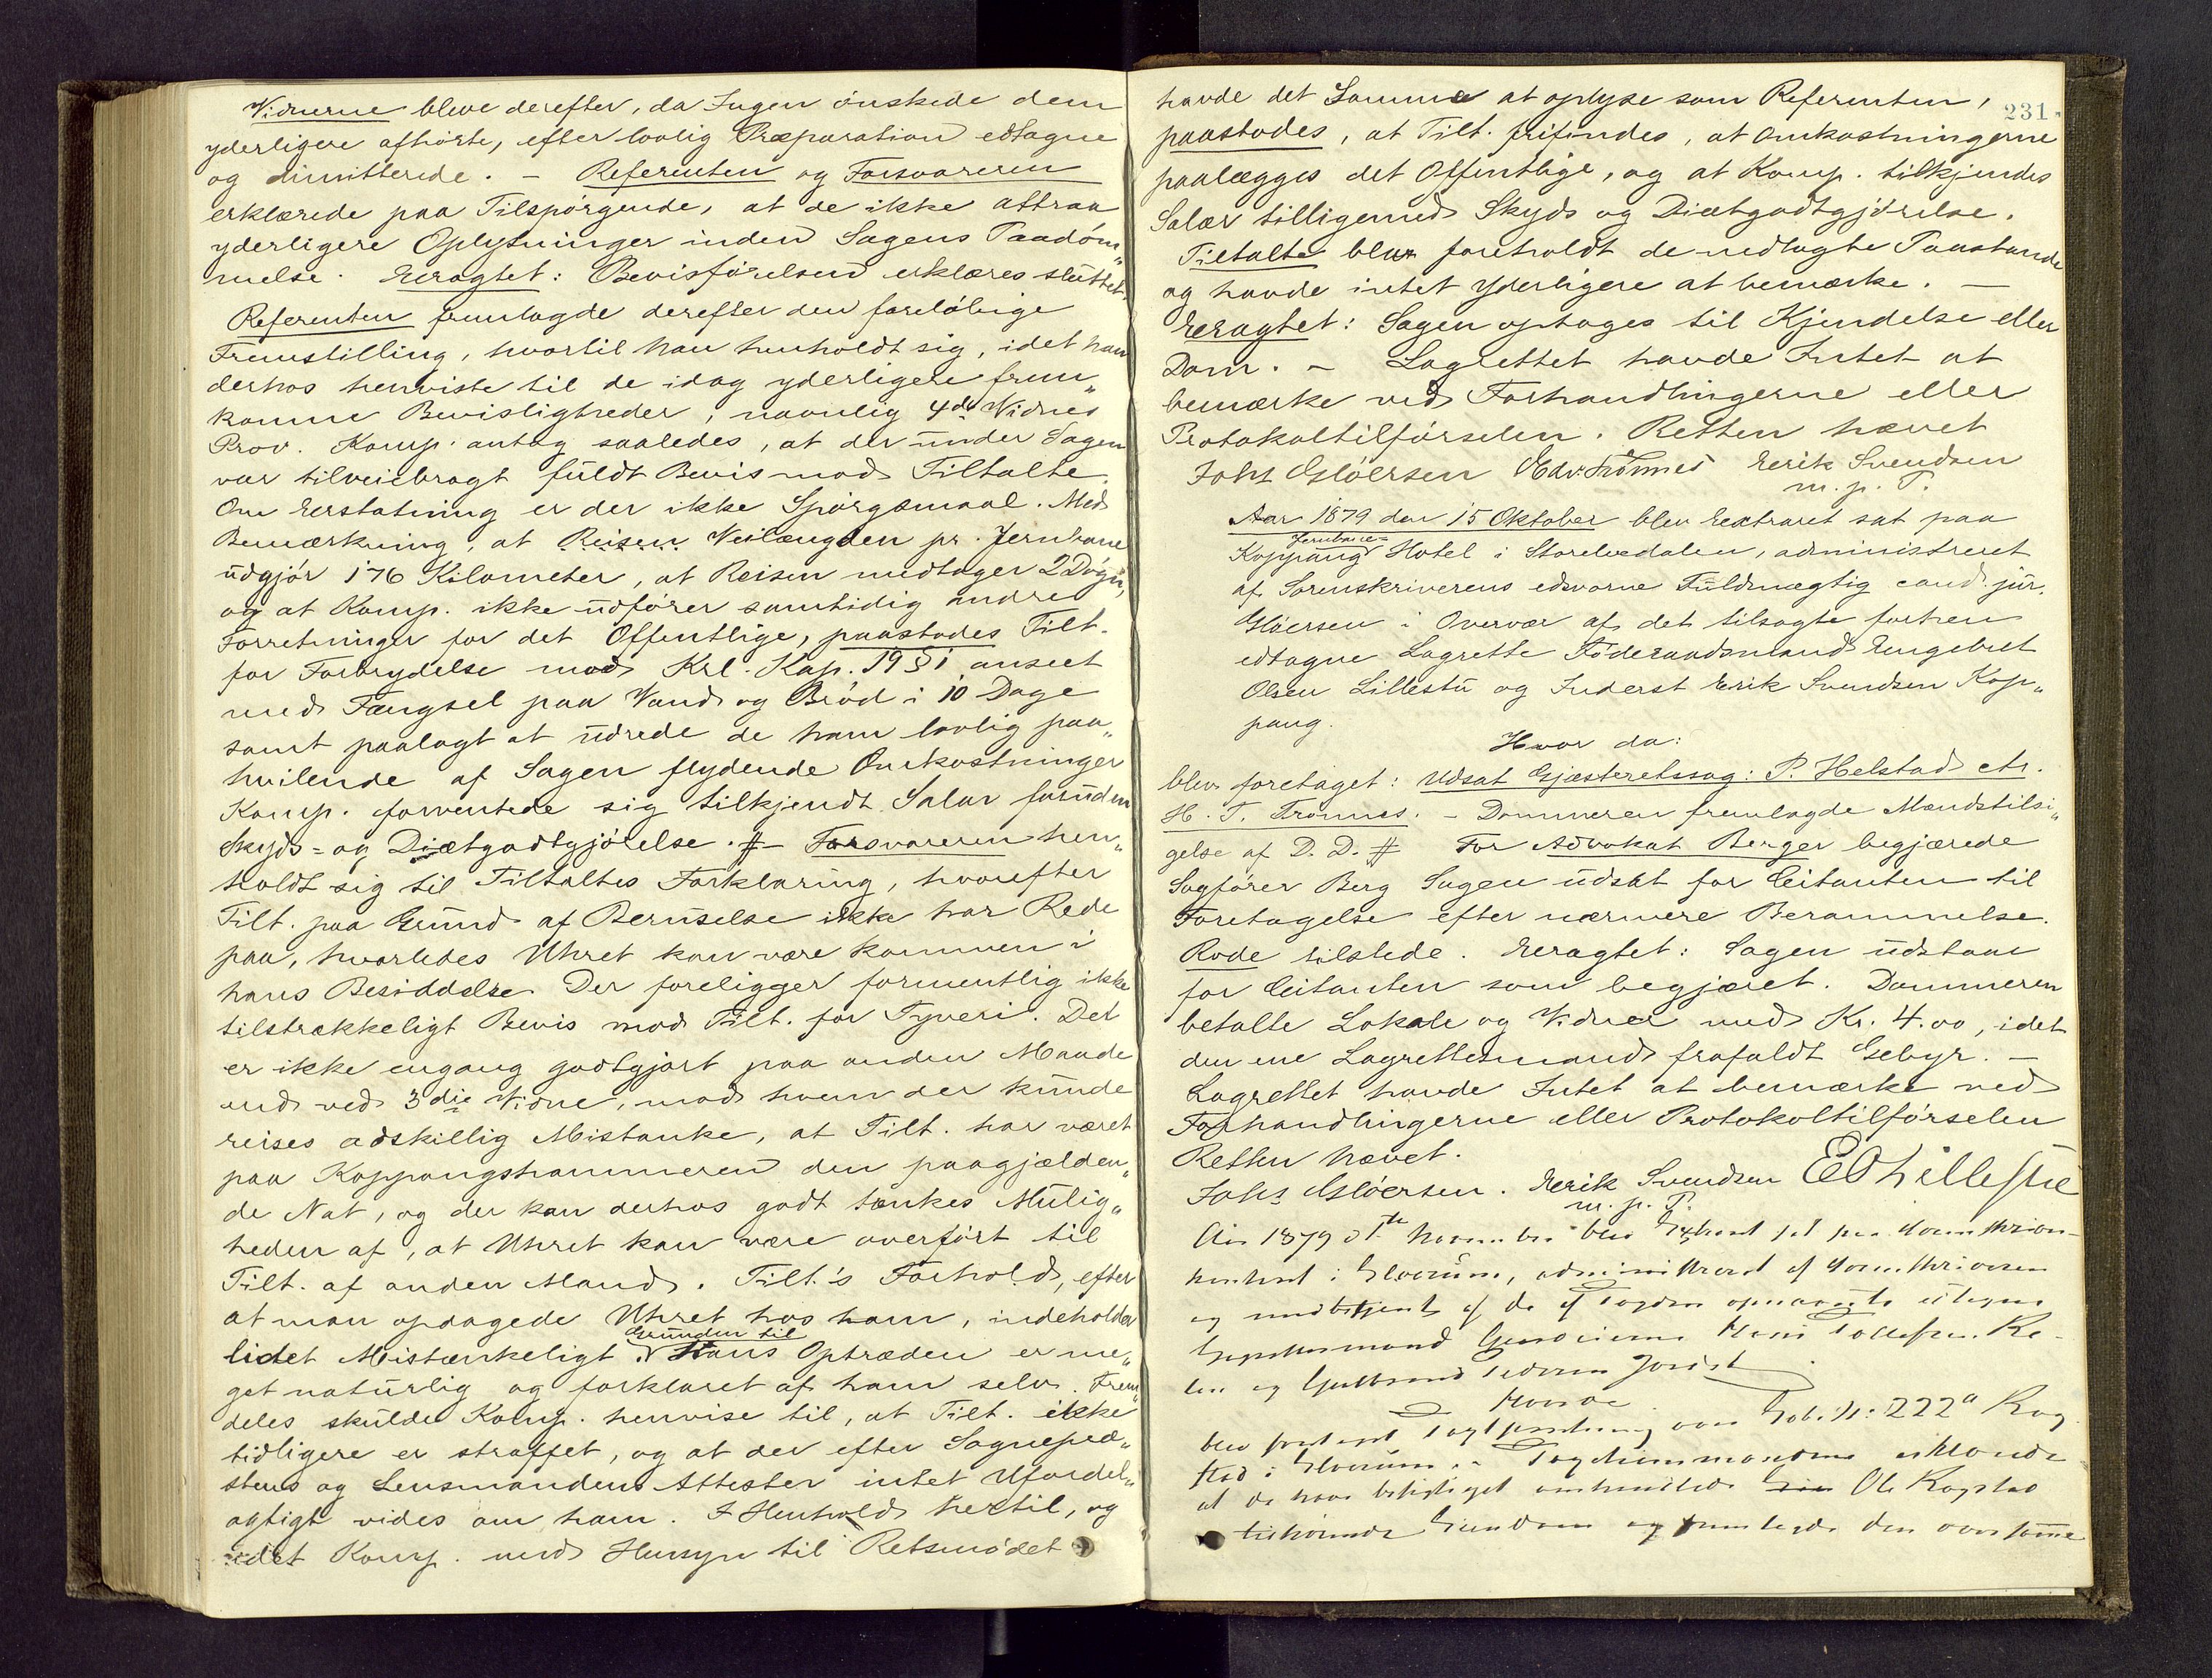 Vidnerne bleve derefter, da Ingen ønskede dem
yderligere afhørte, efter lovlig Præparation edtagne
og dimitterede. – Referenten og Forsvareren
erklærede paa Tilspørgende, at de ikke attraa
yderligere Oplysninger inden Sagens Paadøm„
melse. Eragtet: Bevisførelsen erklæres sluttet.
Referenten fremlagde derefter den foreløbige
Fremstilling, hvortil han henholdt sig, idet han
derhos henviste til de idag yderligere frem„
komne Bevisligheder, navnlig 4de Vidnes
Prov. Komp. antog saaledes, at der under Sagen
var tilveiebragt fuldt Bevis mod Tiltalte.
Om Erstatning er der ikke Spørgsmaal. Med
Bemærkning, at Reisen Veilængden pr. Jernbane
udgjør 176 Kilometer, at Reisen medtager 2 Døgn,
og at Komp. ikke udfører samtidig andre
Forretninger for det Offentlige, paastodes Tilt.
for Forbrydelse mod Krl. Kap. 19 § 1 anseet
med Fængsel paa Vand og Brød i 10 Dage
samt paalagt at udrede de ham lovlig paa„
hvilende af Sagen flydende Omkostninger
Komp. forventede sig tilkjendt Salær foruden
Skyds- og Diætgodtgjørelse. # – Forsvareren hen„
holdt sig til Tiltaltes Forklaring, hvorefter
Tilt. paa Grund af Beruselse ikke har Rede
paa, hvorledes Uhret kan være kommen i
hans Besiddelse. Der foreligger formentlig ikke
tilstrækkeligt Bevis mod Tilt. for Tyveri. Det
er ikke engang godtgjort paa anden Maade
end ved 3die Vidne, mod hvem der kunde
reises adskillig Mistanke, at Tilt. har været
paa Koppangskammeren den paagjælden„
de Nat, og der kan derhos godt tænkes Mulig„
heden af, at Uhret kan være overført til
Tilt. af anden Mand. Tilt.'s Forhold, efter
at man opdagede Uhret hos ham, indeholder
Grunden til
lidet Mistænkeligt. Hans Optræden er me„
get naturlig og forklaret af ham selv. Frem„
deles skulde Komp. henvise til, at Tilt. ikke
tidligere er straffet, og at der efter Sognepræ„
stens og Lensmandens Attester intet Ufordel„
agtigt vides om ham. I Henhold hertil, og
idet Komp. med Hensyn til Retsmødet
231.
havde det Samme at oplyse som Referenten,
paastodes, at Tilt. frifindes, at Omkostningerne
paalægges det Offentlige, og at Komp. tilkjendes
Salær tilligemed Skyds og Diætgodtgjørelse.
Tiltalte blev foreholdt de nedlagte Paastande
og havde intet yderligere at bemærke. –
Eragtet: Sagen optages til Kjendelse eller
Dom. – Lagrettet havde Intet at
bemærke ved Forhandlingerne eller
Protokoltilførselen. Retten hævet
Johs Gløersen Edv. Trønnes Erik Svendsen
m. p. P.
Aar 1879 den 15 Oktober blev Extraret sat paa
Jernbane-
Koppang Hotel i Storelvedalen, administreret
af Sorenskriverens edsvorne Fuldmægtig cand. jur.
Gløersen i Overvær af det tilsagte forhen
edtagne Lagrette Føderaadsmand Engebret
Olsen Lillestu og Inderst Erik Svendsen Kop„
pang.
Hvor da:
blev foretaget: Udsat Gjæsteretssag: P. Helstad ctr.
H. T. Trønnes. – Dommeren fremlagde Mændstilsi„
gelse af D. D. # For Advokat Berger begjærede
Sagfører Berg Sagen udsat for Citanten til
Foretagelse efter nærmere Berammelse.
Rode tilstede. Eragtet: Sagen udstaar
for Citanten som begjæret. Dommeren
betalte Lokale og Vidner med Kr. 4.00, idet
den ene Lagrettesmand frafaldt Gebyr. –
Lagrettet havde Intet at bemærke ved
Forhandlingerne eller Protokoltilførselen
Retten hævet.
Johs Gløersen. Erik Svendsen EO Lillestu
m. p. P.
Aar 1879 November blev Extraret sat paa Sorenskriver-
kontoret i Elverum, administreret af Sorenskriveren
og medbetjent af de af Fogden opnævnte
Hans Tollefsen
og Gulbrand Pedersen
Hvor da
blev 222a Rog
stad i Elverum.
at de have Ole Rogstad
tilhørende Eiendom og fremlagde den